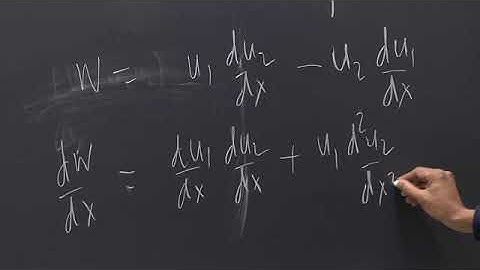 W = u₁ du₂/dx − u₂ du₁/dx
dW/dx = du₁/dx du₂/dx + u₁ d²u₂/dx²